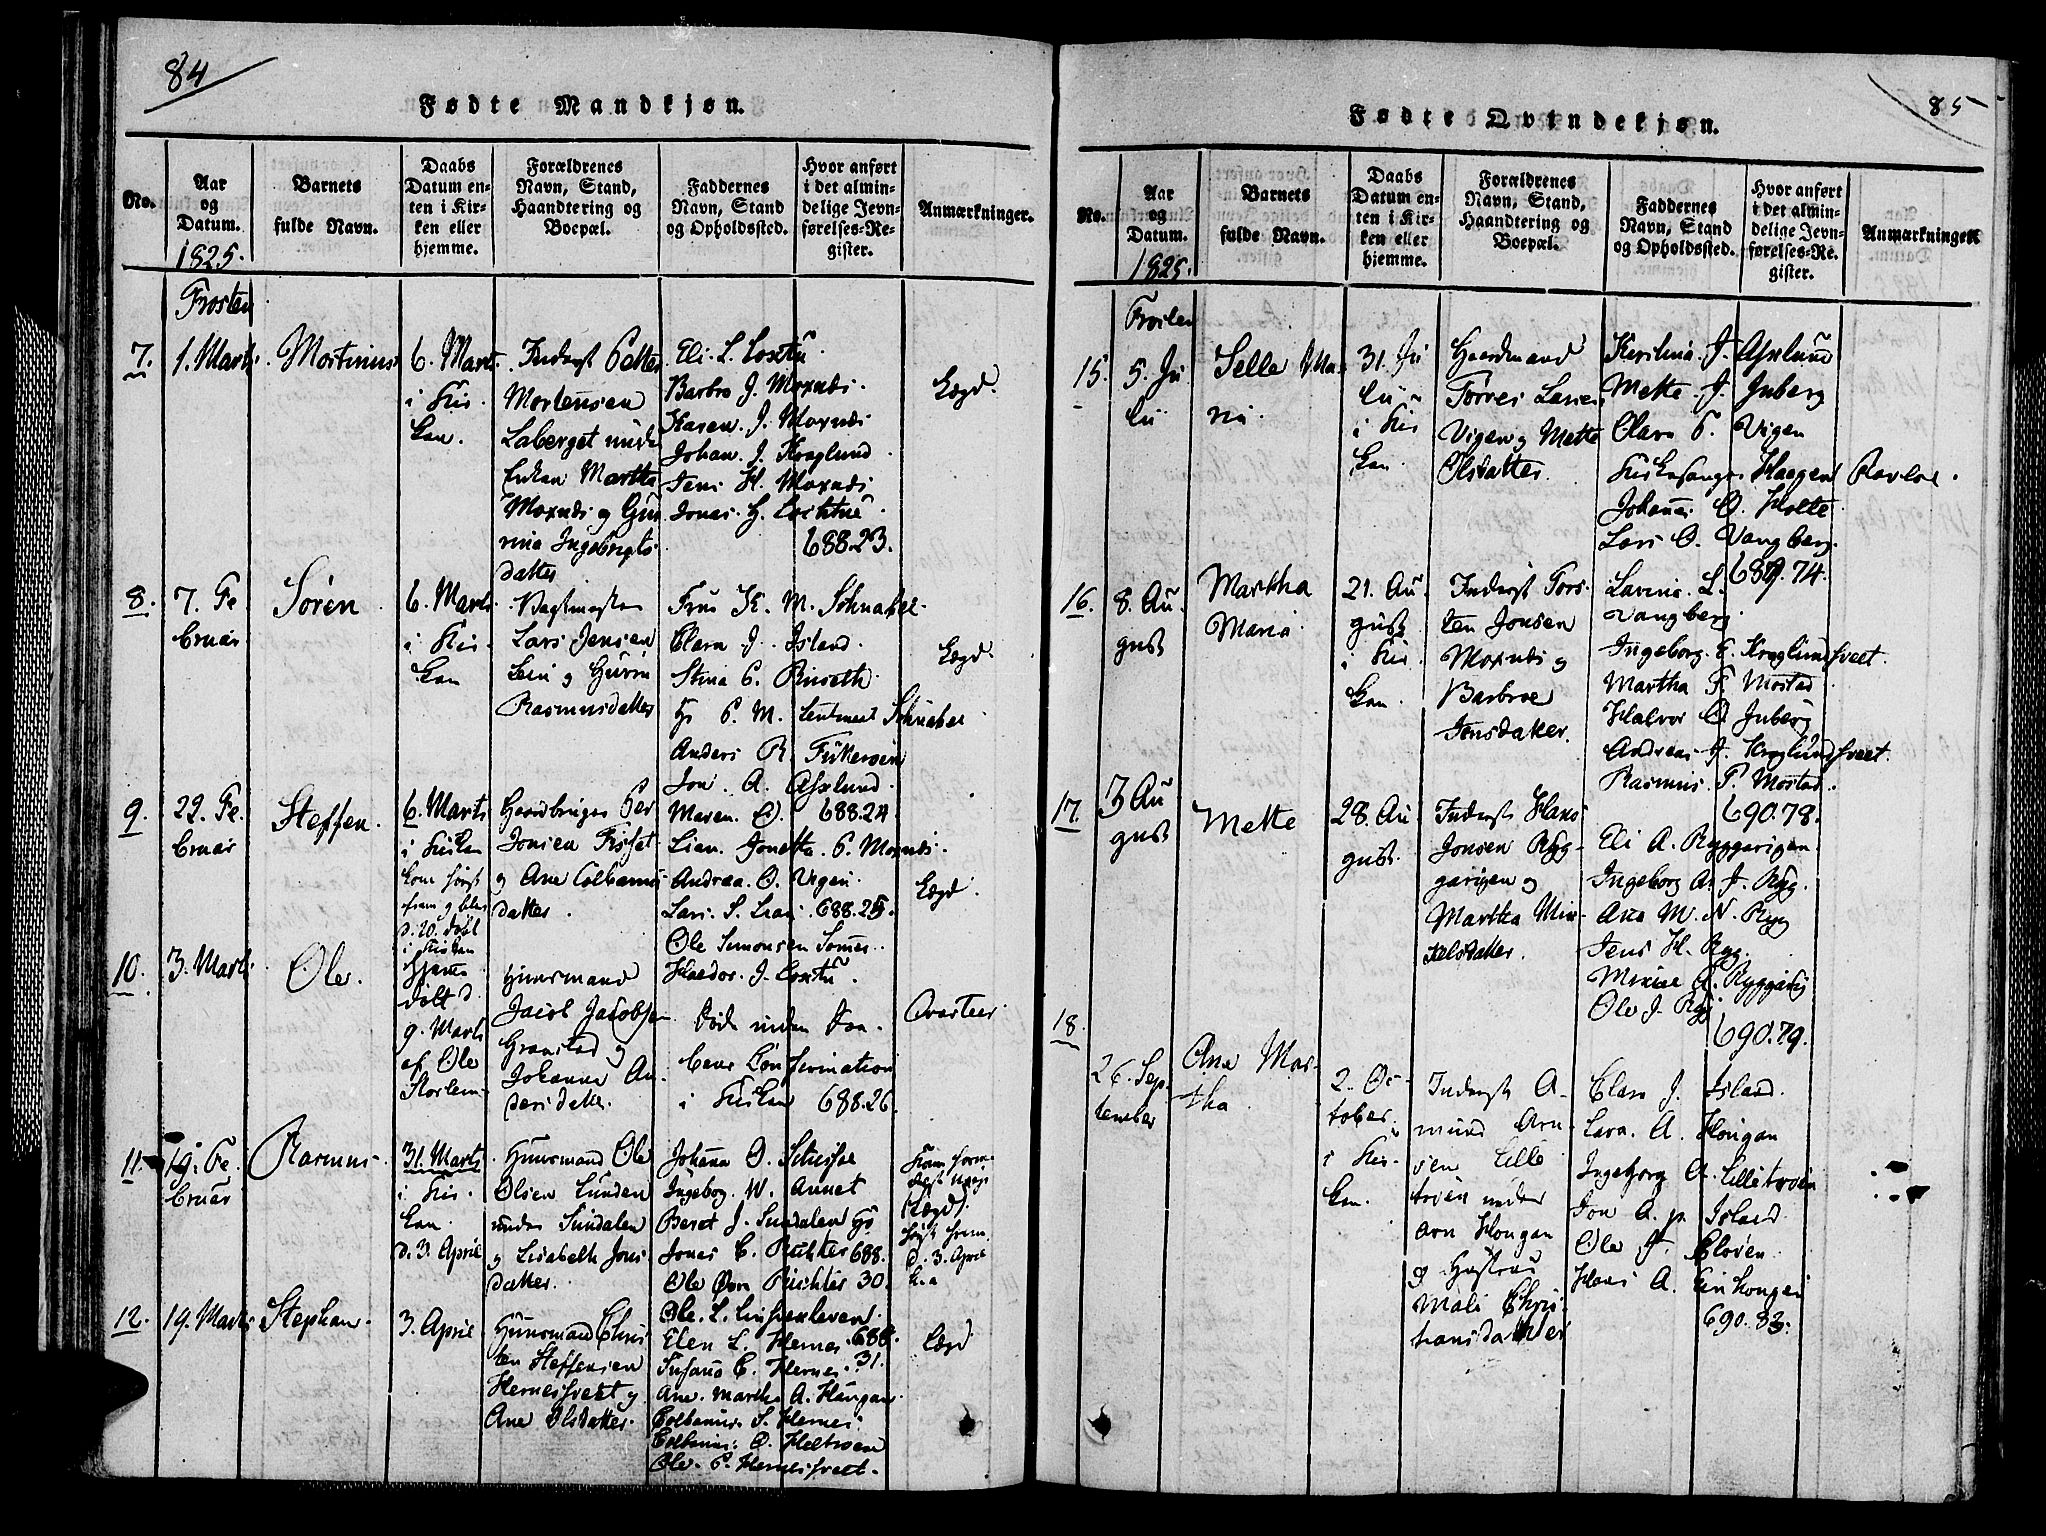 84
Fødte Mandkjøn.
No.
Aar
og
Datum.
1825.
Barnets
fulde Navn.
Daabs
Datum en-
ten i Kir-
ken eller
hjemme.
Forældrenes
Navn, Stand,
Haandtering og
Boepæl.
Faddernes
Navn, Stand
og Opholdssted.
Hvor anført
i det almin-
delige Jevn-
førelses-Re-
gister.
Anmærkninger.
Frosten
7.
1. Marts
Mortinus
6. Marts
i Kir-
ken.
Inderst Petter
Mortensen
Laberget
Enken Martha
Moxnæs og Gu
rina Ingebrigts
datter
Eli L. Loxtu
Barbro J. Moxnæs
Karen J. Moxnæs
Johan J. Kroglund
Jens H. Moxnæs
Jonas H.
688.23.
Lægd.
8.
7. Fe
bruar
Søren
6. Marts
i Kir-
ken
Lars Jensen
Lein og Guren
Rasmusdatter
Frue K. M. Schnabel
Clara J. Island
Stina P. Rinseth
Hr P. M. Leutnant Schnabel
Anders R.
Jon A. Asxlund
688.24
Lægd.
9.
22. Fe
bruar
Steffen.
6. Marts
i Kirken
Gaardbruger Per
Jonsen
og Ane Colbanus
datter.
Maren O.
Lian. Jonetta P. Moxnæs
Andrea O. Vigen
Lars S. Lian 688.25.
Ole Simonsen
Haldor J. Loxtu
Lægd.
10.
3. Marts
Ole.
Hjemme
døbt d.
9. Marts
af Ole
Huusmand
Jacob Jacobsen
Granstad og
Johanna An
dersdatter.
Døde inden Daa-
bens Confirmation
i Kirken 688.26.
11.
19. Fe
bruar
Rasmus
31. Marts
i Kir-
ken.
d. 3. April
Huusmand Ole
Olsen Lunden
under Sundalen
og Lisabeth Jons
datter.
Johanna O.
Ingeborg W. Annet
Beret J. Sundalen Hr
Jonas C. Richter 688.
Ole Richter 30.
(Lægd).
først frem
d. 3. April
12.
19. Marts
Stephan.
3. April
Huusmand Chris
ten Steffensen
Hernesfvæet og
Ane Olsdatter.
Ole L.
Elen L. Hernes 688.
Susana C. Hernes 31.
Ane Martha A. Haugan
Colbanus S. Hernes
Colbanus O.
Ole P. Hernesfveet.
Lægd
85
Fødte Qvindekjøn.
No.
Aar
og
Datum.
1825.
Barnets
fulde Navn.
Daabs
Datum en-
ten i Kir-
ken eller
hjemme.
Forældrenes
Navn, Stand,
Haandtering og
Boepæl.
Faddernes
Navn, Stand
og Opholdssted.
Hvor anført
i det almin-
delige Jevn-
førelses-Re-
gister.
Anmærkninger.
Frosten
15.
5. Ju
lii
Selle Ma-
ria
31. Ju
lii
i Kir
ken.
Gaardmand
Torres Larsen
Vigen og Mette
Olsdatter.
J. Asxlund
Mette J. Inberg
Olava P. Vigen
Kirkesanger Haagen
Johannes O. Holte
Lars O. Vangberg
689.74.
16.
8. Au-
gust
Martha
Maria
21. Au
gust
i Kir
ken.
Inderst Tors
ten Jonsen
Moxnæs og
Barbroe
Jonsdatter.
Lavina L.
Vangberg
Ingeborg E. Kroglundsveet.
Martha F. Mostad
Halvor O. Inberg
Andreas J. Kroglundsveet.
Rasmus T. Mostad.
690.78.
17.
3 Au
gust
Mette
28. Au
gust.
Inderst Hans
Jonsen Ryg-
garigen og
Martha Mik
kelsdatter.
Eli A. Ryggarigen
Ingeborg A. J. Ryg.
Ana M. N. Ryg
Jens H. Ryg.
Mikkel A. Ryggarig
Ole J. Ryg
690.79.
18.
26. Sep
tember
Ane Mar-
tha
2. Oc-
tober
i Kir-
ken.
Inderst A-
mund Arn
sen Lille
troen under
Arn Hougan
og Hustrue
Mali Chris
tiansdatter
Clara J. Island.
Lava A. Hougan
Ingeborg A. Lilletroen
Jon A. p. Island
Ole J. Kloven
Hans A.
690.83.